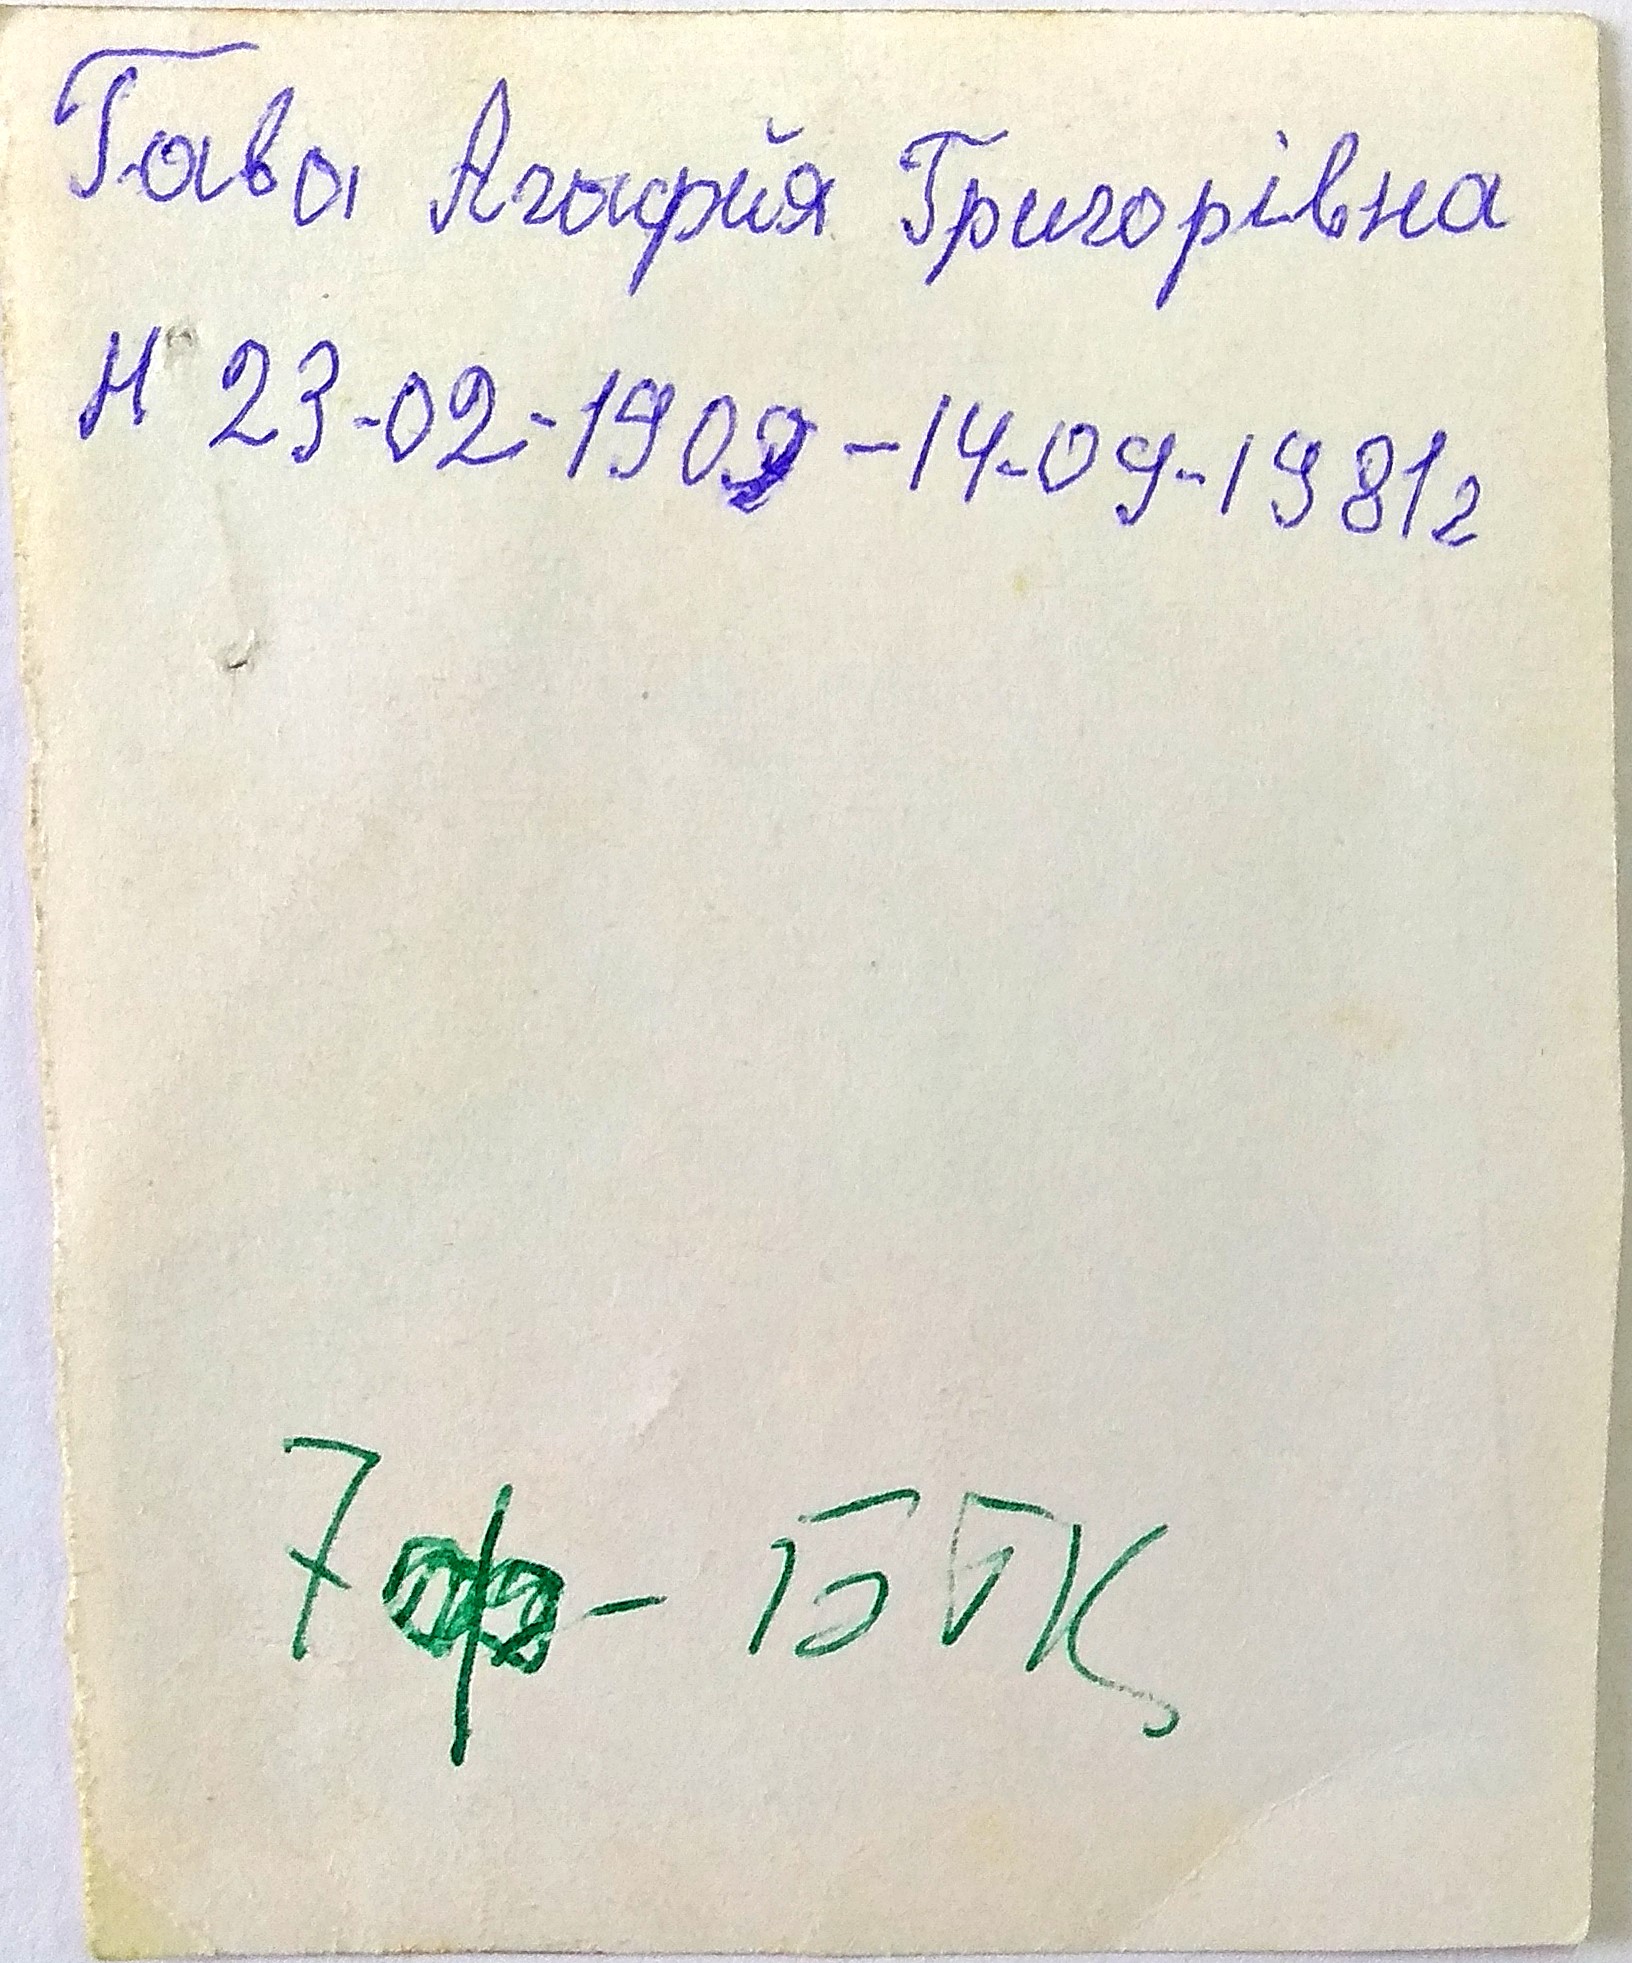 Гава Агафия Григорівна
Н 23-02-1902 -14-09-1981г
7 ф - БГК